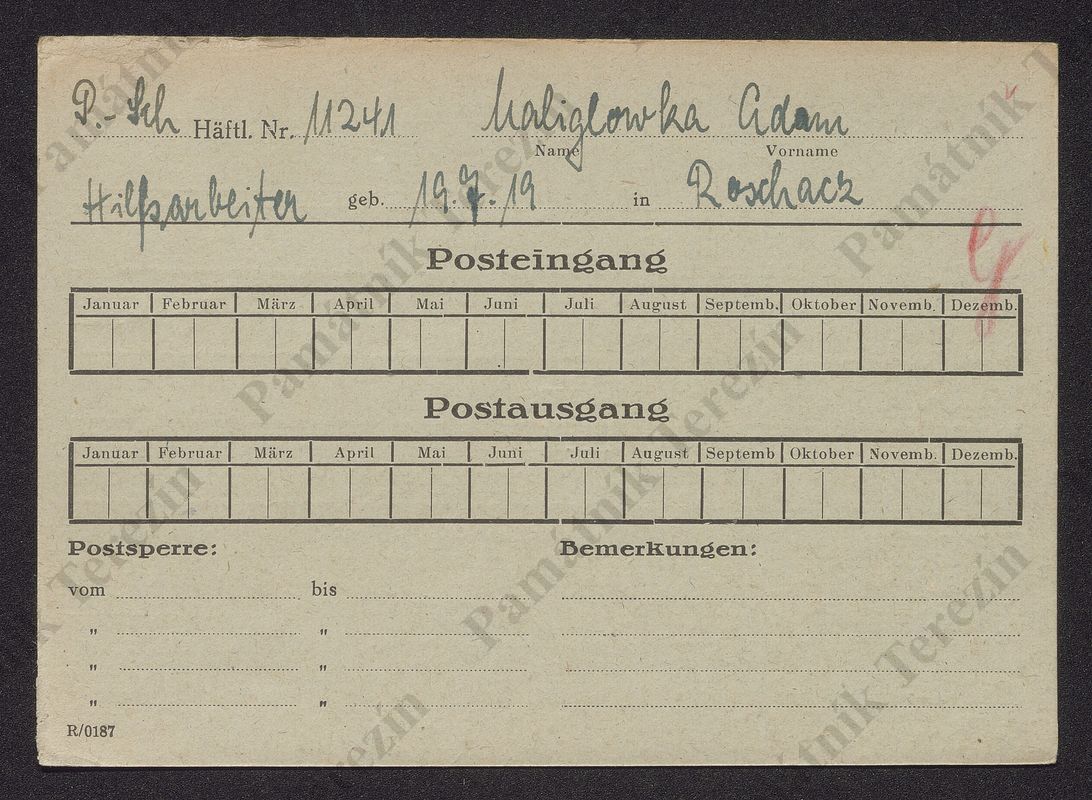 P.-Sch Häftl. Nr. 11241 Maliglowka Adam
Name Vorname
Hilfsarbeiter geb. 19.7.19 in Roschacz
Posteingang
Januar Februar März April Mai Juni Juli August Septemb. Oktober Novemb. Dezemb.
Postausgang
Januar Februar März April Mai Juni Juli August Septemb Oktober Novemb. Dezemb.
Postsperre: Bemerkungen:
vom bis
" "
" "
" "
R/0187
Památník Terezín